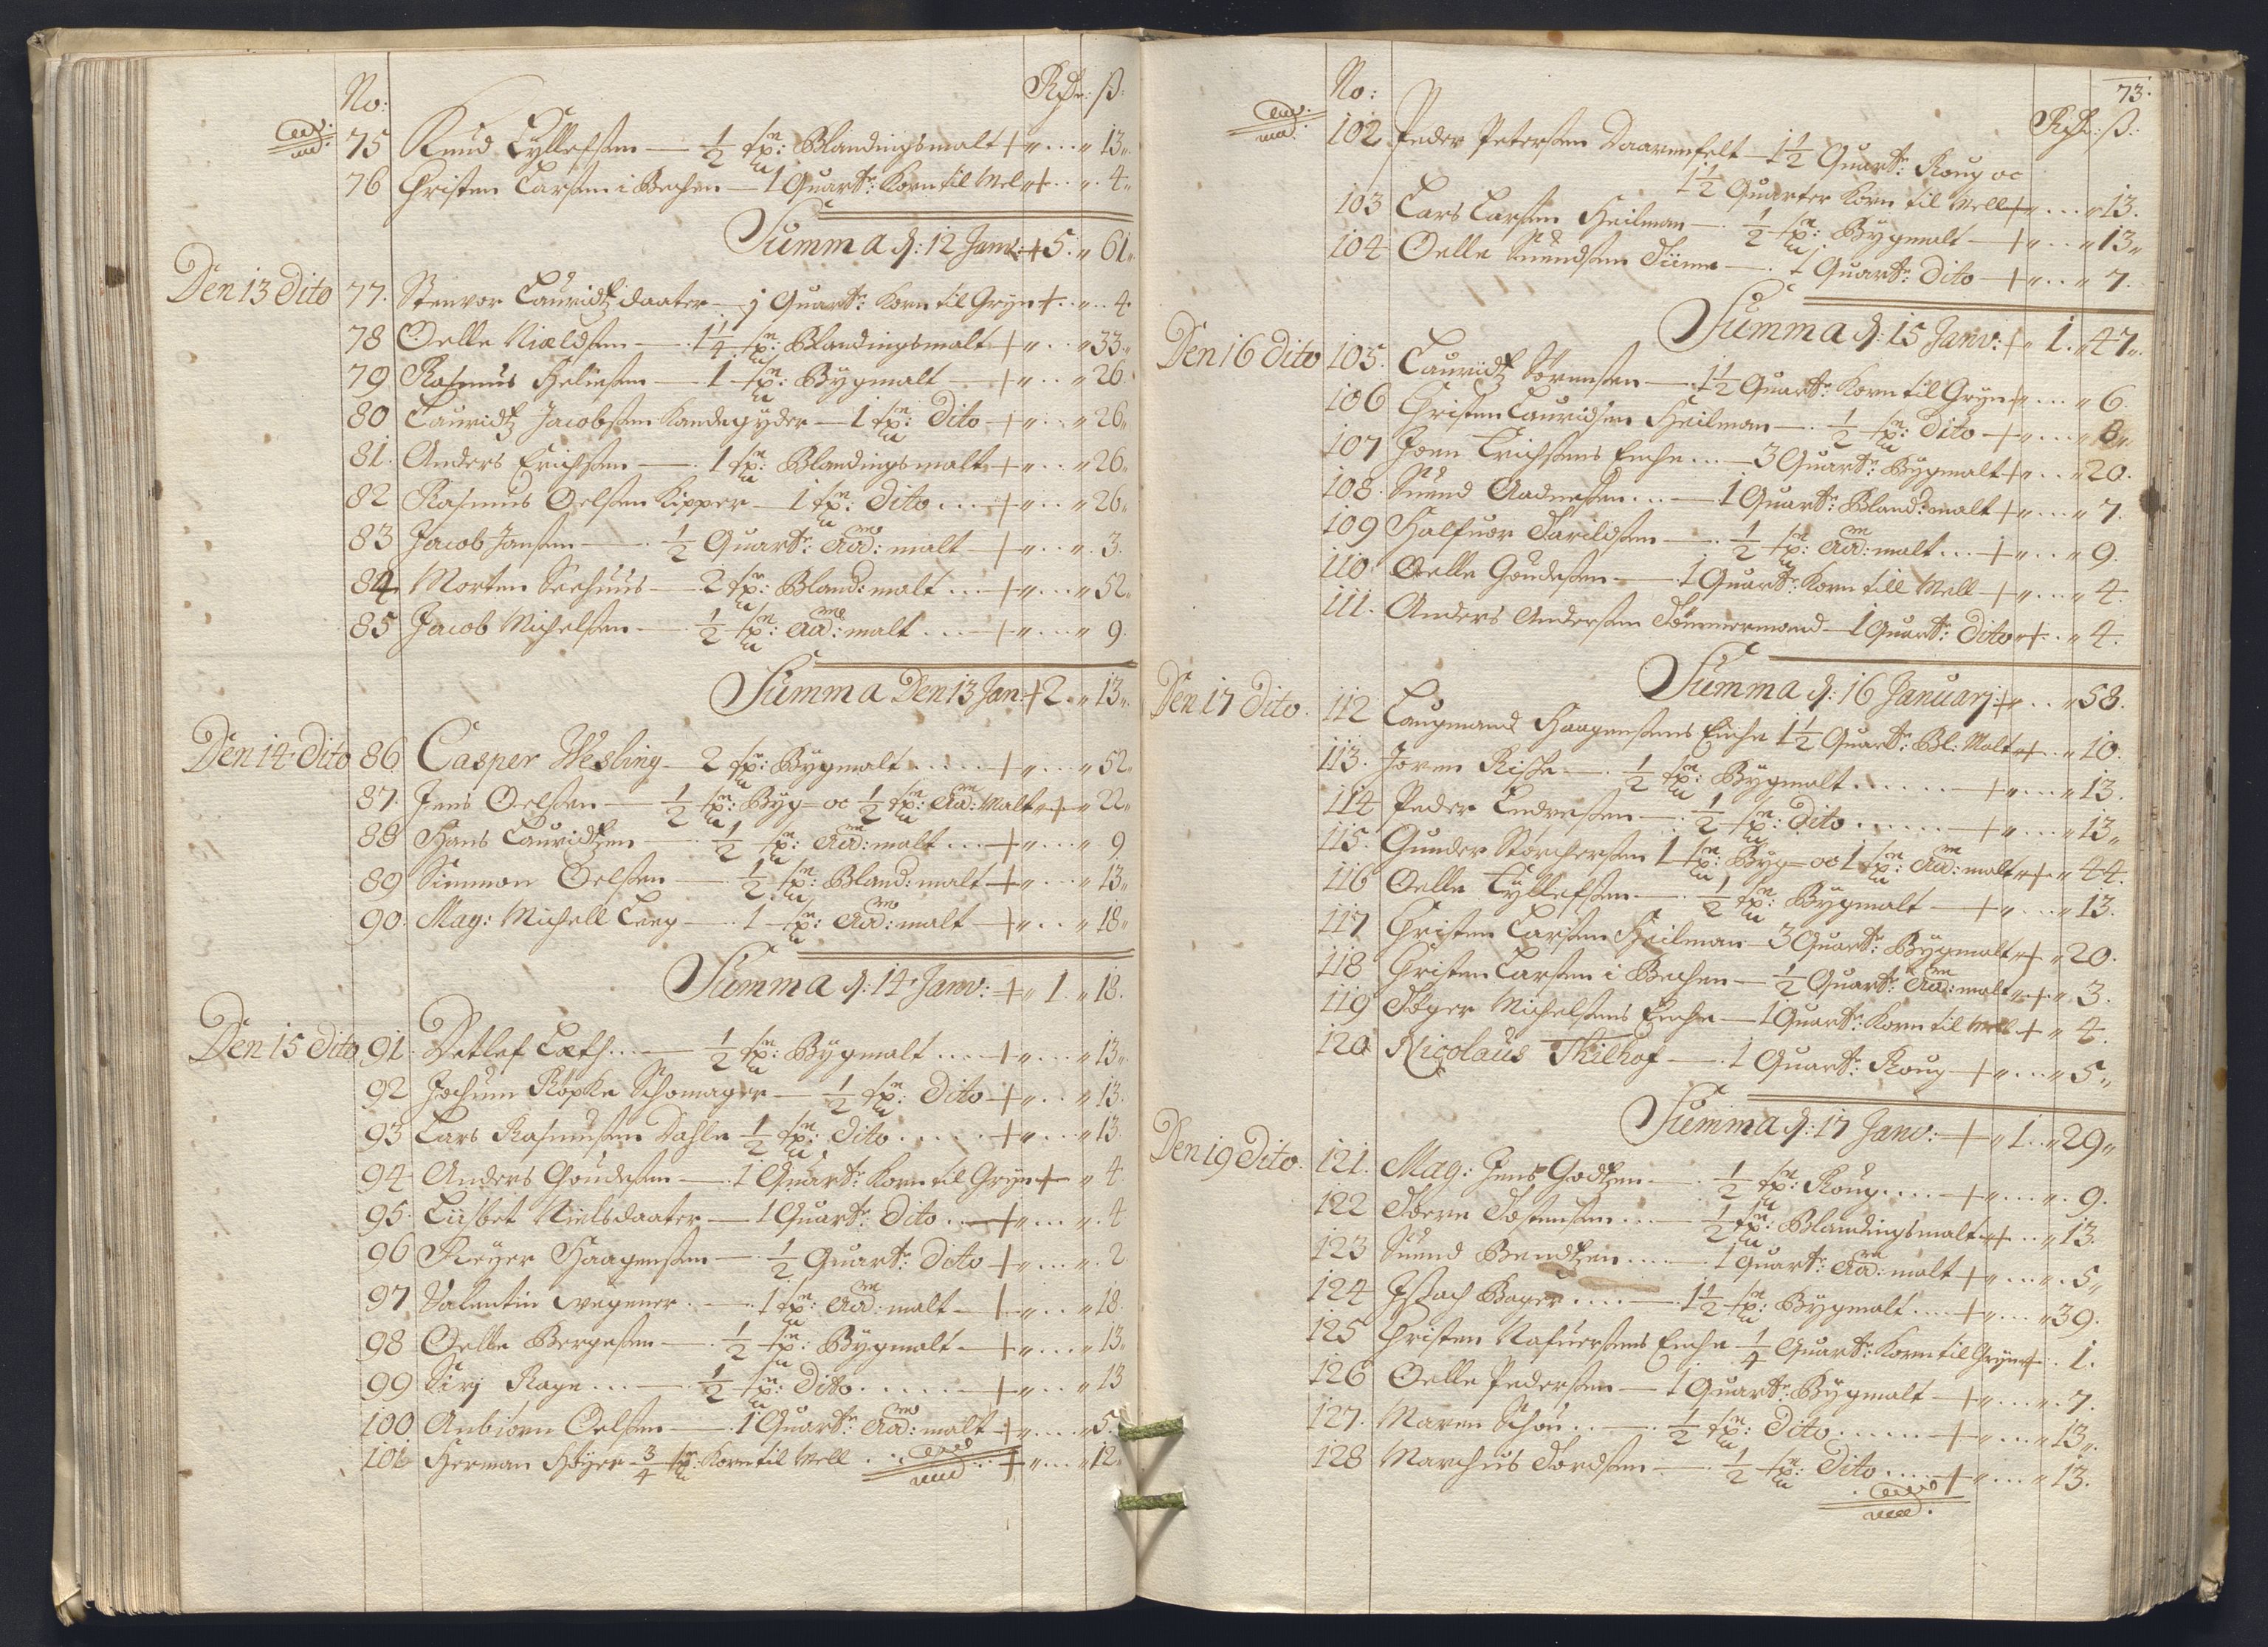 No: Rdr: ß:
75 Knud Tyllefsen — ½ tn: Blandingsmalt + " . . " 13 "
76 Christen Larsen i Bechen — 1 Quartr: Korn til Mel + . . " 4 "
Summa d: 12 Janv: + 5 . " 61 "
Den 13 Dito 77. Stenvor Lauridtz daater — 1 Quartr: Korn til Gryn + . . " 4
78 Oelle Nieldsen — 1¼ tn: Blandingsmalt + " . . " 33 "
79. Rasmus Heliesen — 1 tn: Bÿgmalt — + " . . " 26 "
80 Lauridtz Jacobsen Kandegÿder — 1 tn: Dito + " . . " 26 "
81. Anders Erichsen — 1 tn: Blandingsmalt + " . . " 26 "
82 Rasmus Oelsen Kipper — 1 tn: Ditto . . . + " . . " 26 "
83 Jacob Jansen — ½ Quartr: Aad: malt — + " . . " 3.
84 Morten Seehuus — 2 tn: Bland: malt . . . + " . . . " 52 "
85 Jacob Michelsen — ½ tn: Aad: malt . . . + " . . . " 9.
Summa Den 13 Jan: + 2 . " 13 "
Den 14 Dito 86 Casper Wesling — 2 tn: Bÿgmalt . . . . . + " . . . " 52 "
87. Jens Oelsen — ½ tn: Bÿg- oc ½ tn: Aad: Malt + " 22 "
88 Hans Lauridtzen — ½ tn: Aad: malt . . . + " . . . " 9
89 Simmon Oelsen — ½ tn: Bland: malt + " . . . " 13 "
90. Mag: Michell Leeg — 1 tn: Aad: malt — + " . . " 18 "
Summa d: 14 Janv: + " 1. " 18.
Den 15 Dito 91. Detlef Cath . . . — ½ tn: Bÿgmalt . . . . + " . . . " 13 "
92 Jochum Röpke Schomager — ½ tn: Dito + " . . " 13.
93 Lars Rasmusen Dahle ½ tn: Dito . . . . . + " . . . " 13
94 Anders Goudesen — 1 Quartr: Korn til Gryn + " 4
95. Liisbet Nielsdaater — 1 Quartr: Dito . . — + " . . . " . 4
96 Reÿer Haagensen — ½ Quartr: Dito + " . . . " . 2
97 Valentin Wegener . — 1 tn: Aad: malt — + " . . " 18.
98 Oelle Bergesen — ½ tn: Bÿgmalt — + " . . . " 13 "
99 Sirj Rage . . . — ½ tn: Dito . . . . . . + " . . . " 13
100 Anbiörn Oelsen — 1 Quartr: Aad: malt + " . . . . " 5.
101 Herman Höÿer ¾ tn: Korn til Mell . . . + " . . . " 12 "
73.
No: Rdr: ß:
102 Peder Petersen Daarenfelt — 1½ Quartr: Roug oc
1½ Quarter Korn til Mell + " . . . " 13.
103 Lars Larsen Heilman — ½ tn: Bÿgmalt — + " . . " 13 "
104 Oelle Suendsen Tiime — 1 Quartr: Dito — + " . . " 7.
Summa d: 15 Janv: + " 1. " 47 "
Den 16 Dito 105. Lauridtz Sörensen — 1½ Quartr: Korn til Gryn + " . . . " 6
106 Christen Lauridsen Heilman — ½ tn: Dito + " . . . " 8 "
107 Joen Erichsens Enche . . . — 3 Quartr: Bÿgmalt + " . . " 20.
108. Suend Aadnesen . . . — 1 Quartr: Bland: malt + " . . . " 7.
109 Halfuor Tarildsen — ½ tn: Aad: malt . . . + " . . " 9.
110. Oelle Goudesen — 1 Quartr: Korn till Mell — + " . . . " 4.
111. Anders Andersen Tömmermand — 1 Quartr: Dito + . " 4.
Summa d: 16 Januarj: + " . . " 58.
Den 17 Dito. 112 Laugmand Haagensens Enche 1½ Quartr: Bl: Malt + . . " 10.
113. Joren Rische — ½ tn: Bÿgmalt . . . . . . + " . . . " 13.
114 Peder Endresen — ½ tn: Dito . . . . . . + " . . . " 13 "
115. Gunder Storchersen 1 tn: Bÿg- oc 1 tn: Aad: malt + " 44.
116 Oelle Tÿllefsen — ½ tn: Bÿgmalt — + " . . . " 13.
117 Christen Larsen Heilman — 3 Quartr: Bÿgmalt + " 20.
118 Christen Larsen i Bechen — ½ Quartr: Aad: malt + " . 3.
119 Töger Michelsens Enche — 1 Quartr: Korn til Mell + " 4.
120 Nicolaus Thilhof — 1 Quartr: Roug — + " . . . " 5 "
Summa d: 17 Janv: + " 1 . . " 29 "
Den 19 Dito. 121. Mag: Jens Godtzen — ½ tn: Roug . . . . + " . . . " . 9.
122 Toern Tostensen . . . — ½ tn: Blandingsmalt + . . " 13.
123 Suend Bendtzen . . . — 1 Quartr: Aad: malt + " . . . " . 5 "
124 Isach Bager . . . . — 1½ tn: Bÿgmalt . . . . + " . . . " 39.
125 Christen Rafuersens Enche ¼ Quartr: Korn til Gryn + . . 1.
126 Oelle Pedersen — 1 Quartr: Bÿgmalt — + " . . . " . 7.
127. Maren Schou . . — ½ tn: Dito . . . . . . + " . . . " 13 "
128 Marchus Tordsen — ½ tn: Dito . . . . + " . . . " 13.